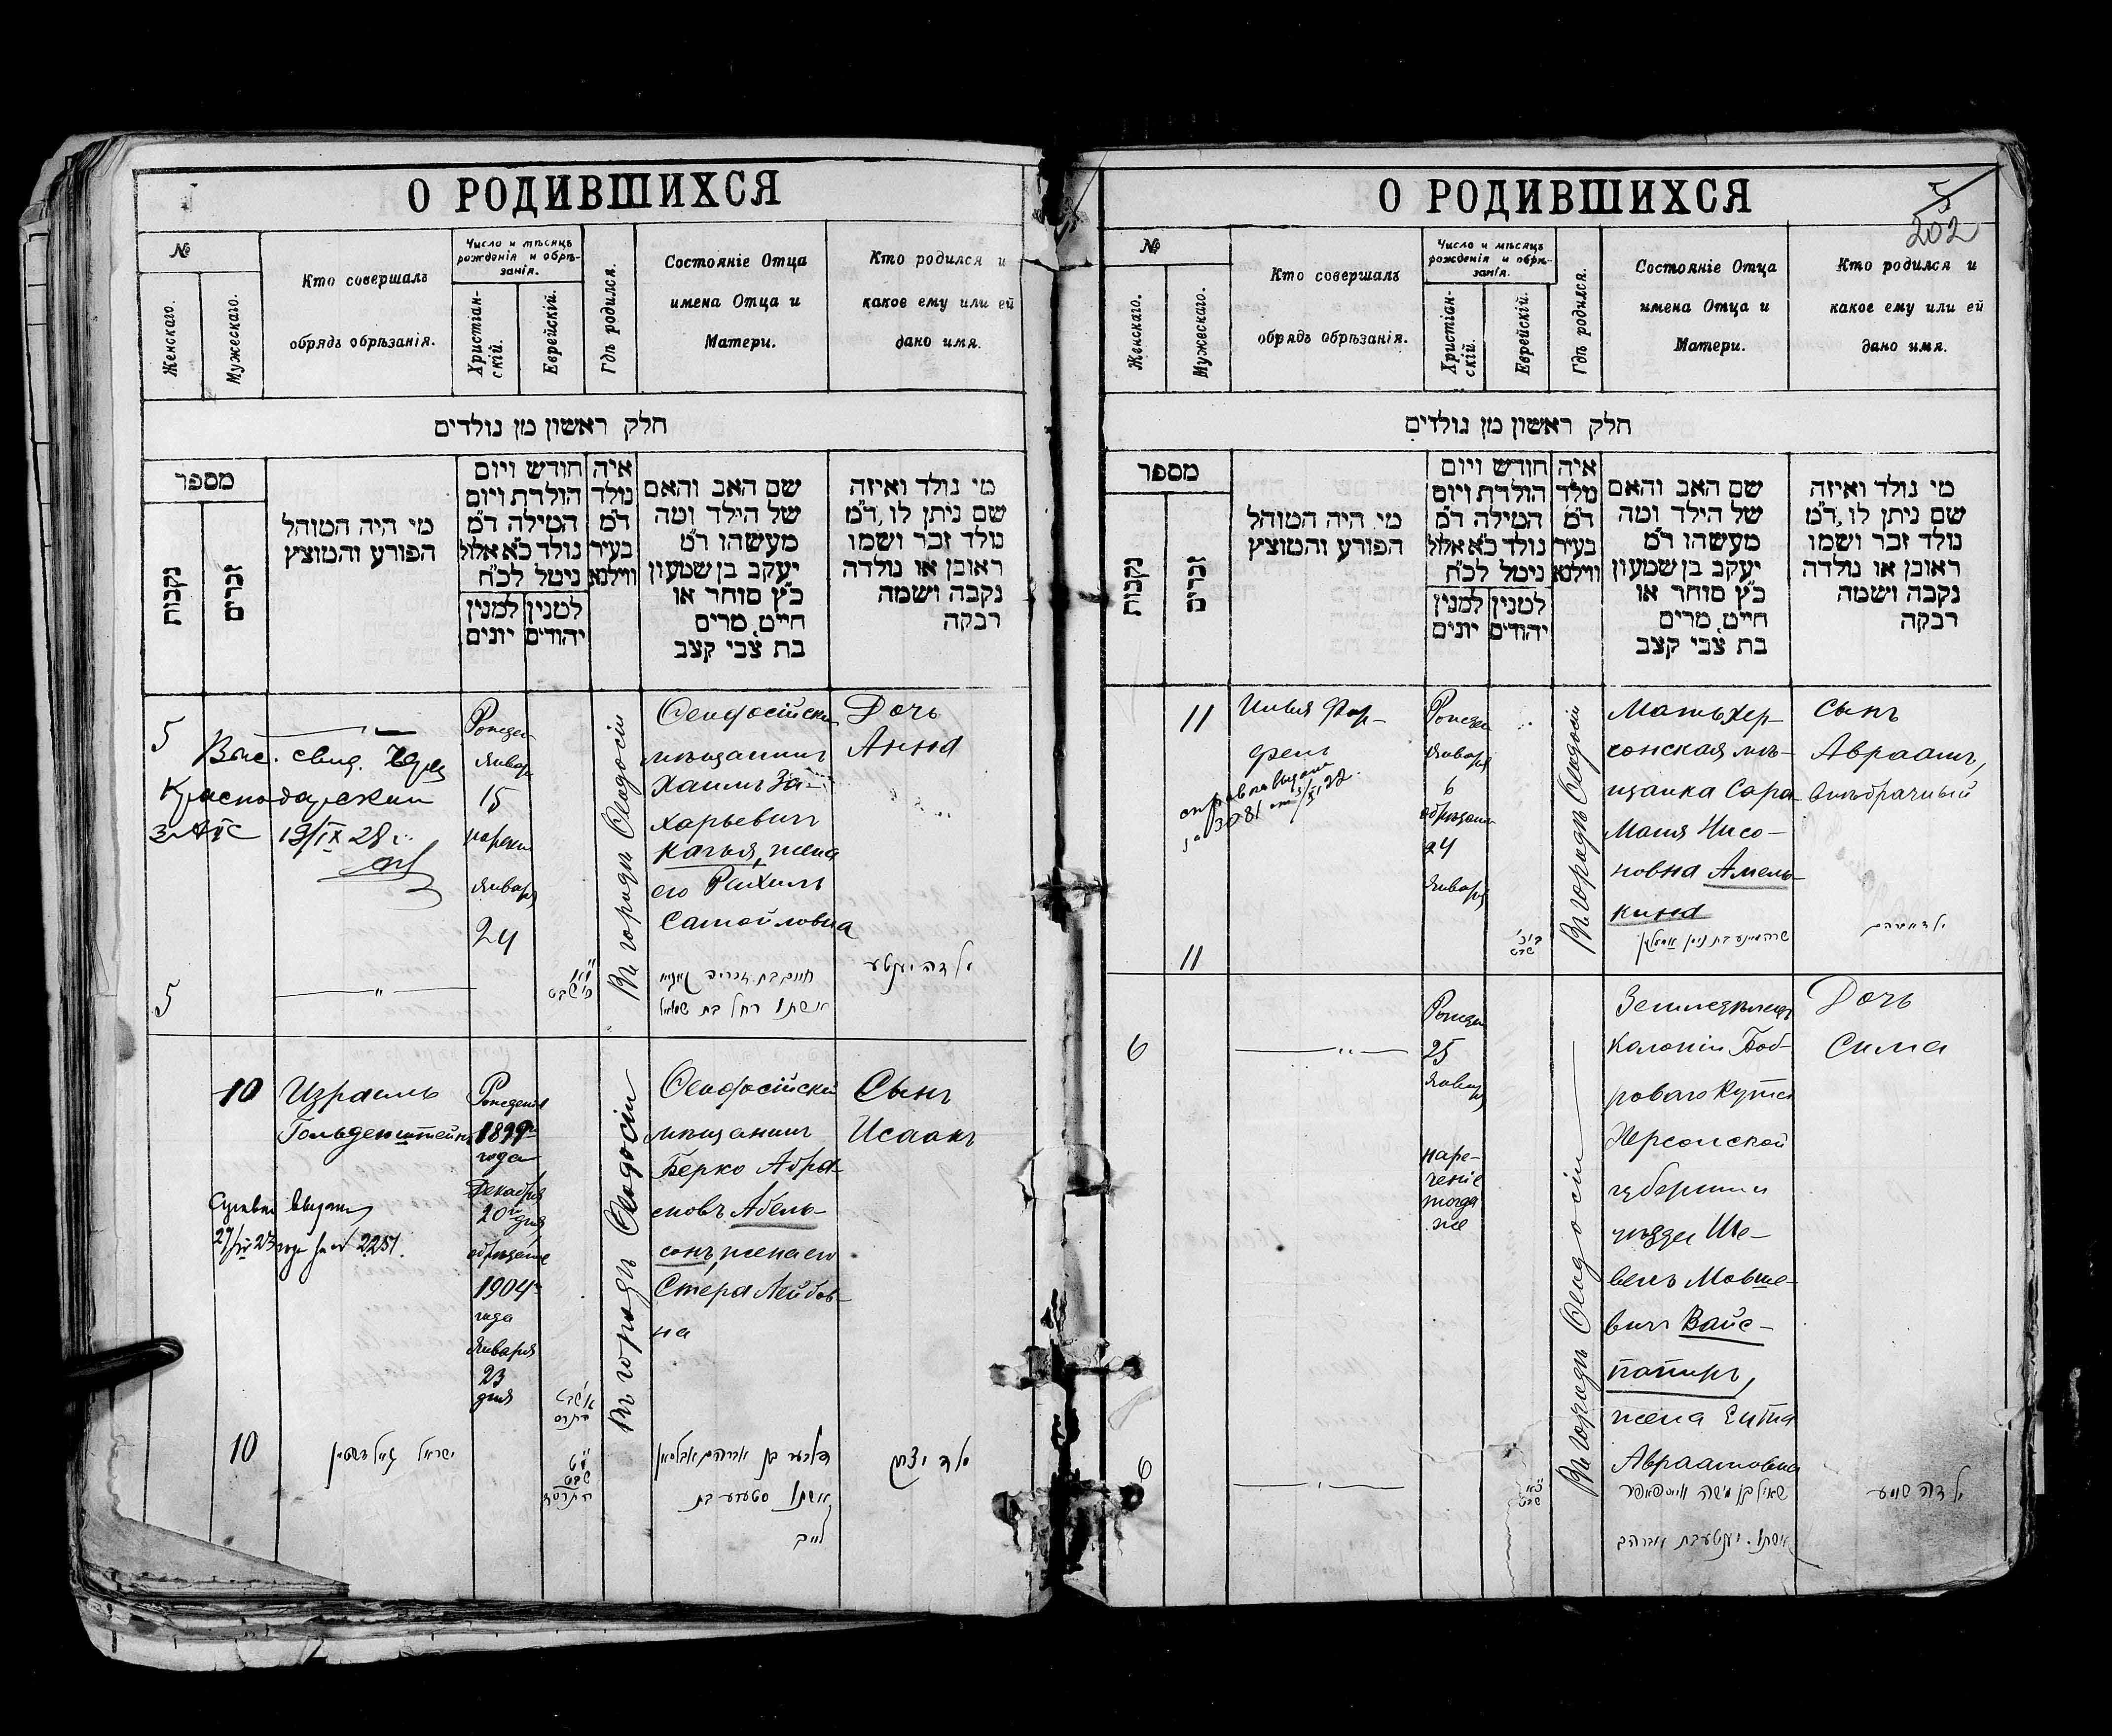 О РОДИВШИХСЯ
№
Женскаго.
Мужескаго.
Кто совершалъ
обрядъ обрѣзанія.
Число и мѣсяцъ
рожденія и обрѣ-
занія.
Христіан-
скій.
Еврейскій.
Гдѣ родился.
Состояніе Отца
имена Отца и
Матери.
Кто родился и
какое ему или ей
дано имя.
חלק ראשון מן נולדים
מספר
נקבות
זכרים
מי היה המוהל
הפורע והמוצץ
חודש ויום
הולדת ויום
המילה ד״מ
נולד כ״א אלול
נימל לכ״ח
למנין יונים
למנין יהודים
איה
נולד
ד״מ
בעיר
ווילנא
שם האב והאם
של הילד ומה
מעשהו ד״מ
יעקב בן שמעון
כ״ץ סוחר או
חייט, מרים
בת צבי קצב
מי נולד ואיזה
שם ניתן לו, ד״מ
נולד זכר ושמו
ראובן או נולדה
נקבה ושמה
רבקה
5
Выс. свид. через
Краснодарский
ЗАГС 19/IX 28 г.
Рожден
Январ
15
наречен
Января
24
Въ городѣ Ѳеодосіи
Ѳеодосійскій
мѣщанинъ
Хаимъ За-
харьевичъ
Качья, жена
его Рахиль
Самойловна
Дочь
Анна
5
אשתו רחל בת שמואל
ילדה יענטע
10
Израиль
Гольденштейнъ
Справка выдана
27/IV 23 года за № 2251.
Рожденія
1899го
года
Декабря
20го дня
обрѣзаніе
1904го
года
Января
23
дня
Въ городѣ Ѳеодосіи
Ѳеодосійскій
мѣщанинъ
Берко Абра-
мовъ Абель-
сонъ, жена его
Стера Лейбов-
на
Сынъ
Исаакъ
10
ישראל גאלדשטיין
אשתו סטערע בת
לייב
ילד יצחק
О РОДИВШИХСЯ
5
202
№
Женскаго.
Мужескаго.
Кто совершалъ
обрядъ обрѣзанія.
Число и мѣсяцъ
рожденія и обрѣ-
занія.
Христіан-
скій.
Еврейскій.
Гдѣ родился.
Состояніе Отца
имена Отца и
Матери.
Кто родился и
какое ему или ей
дано имя.
חלק ראשון מן נולדים
מספר
נקבות
זכרים
מי היה המוהל
הפורע והמוצץ
חודש ויום
הולדת ויום
המילה ד״מ
נולד כ״א אלול
נימל לכ״ח
למנין יונים
למנין יהודים
איה
נולד
ד״מ
בעיר
ווילנא
שם האב והאם
של הילד ומה
מעשהו ד״מ
יעקב בן שמעון
כ״ץ סוחר או
חייט, מרים
בת צבי קצב
מי נולד ואיזה
שם ניתן לו, ד״מ
נולד זכר ושמו
ראובן או נולדה
נקבה ושמה
רבקה
11
справка выдана
Рожден
Января
6
обрѣзанія
24
Января
Въ городѣ Ѳеодосіи
Мать Хер-
сонская мѣ-
щанка Сара
Маня Нисо-
новна Амель-
кина
Сынъ
Авраамъ,
внѣбрачный
11
ילד אברהם
6
Рожден
25
Января
наре-
ченіе
тогда
же
Въ городѣ Ѳеодосіи
Земледѣлецъ
колоніи Боб-
роваго Кута
Херсонской
губерніи
уѣзда Ше-
вель Мовше-
вичъ Вайс-
папиръ,
жена Ента
Авраамовна
Дочь
Сима
6
אשתו יענטע בת אברהם
ילדה סימע